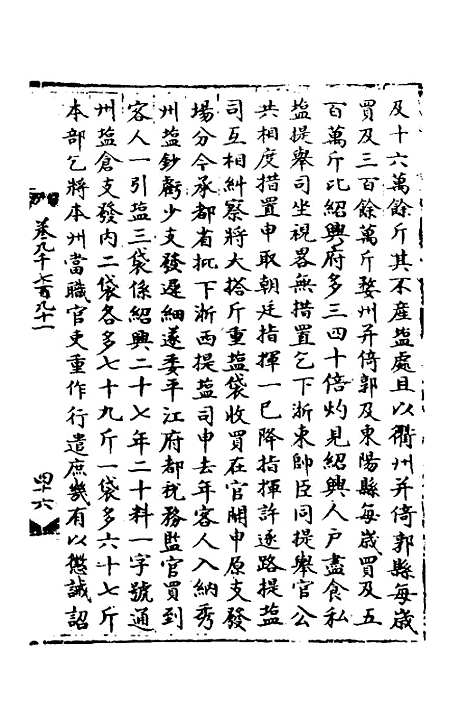 及十六萬餘斤其不產塩處且以衢州并倚郭縣每歲
買及三百餘萬斤婺州并倚郭及東陽縣每歲買及五
百萬斤比紹興府多三四十倍灼見紹興人戶盡食私
塩提舉司坐視畧無措置乞下浙東帥臣同提舉官公
共相度措置申取朝廷指揮一已降指揮許逐路提塩
司互相糾察將大搭斤重塩袋收買在官開申原支發
塲分今承都省批下浙西提塩司申去年客人入納秀
州塩鈔虧少支發遲細遂委平江府都稅務監官買到
客人一引塩三袋係紹興二十七年二十料一字號通
州塩倉支發內二袋各多七十九斤一袋多六十七斤
本部乞將本州當職官吏重作行遣庶幾有以懲誡詔
卷九千七百九十一
四十六